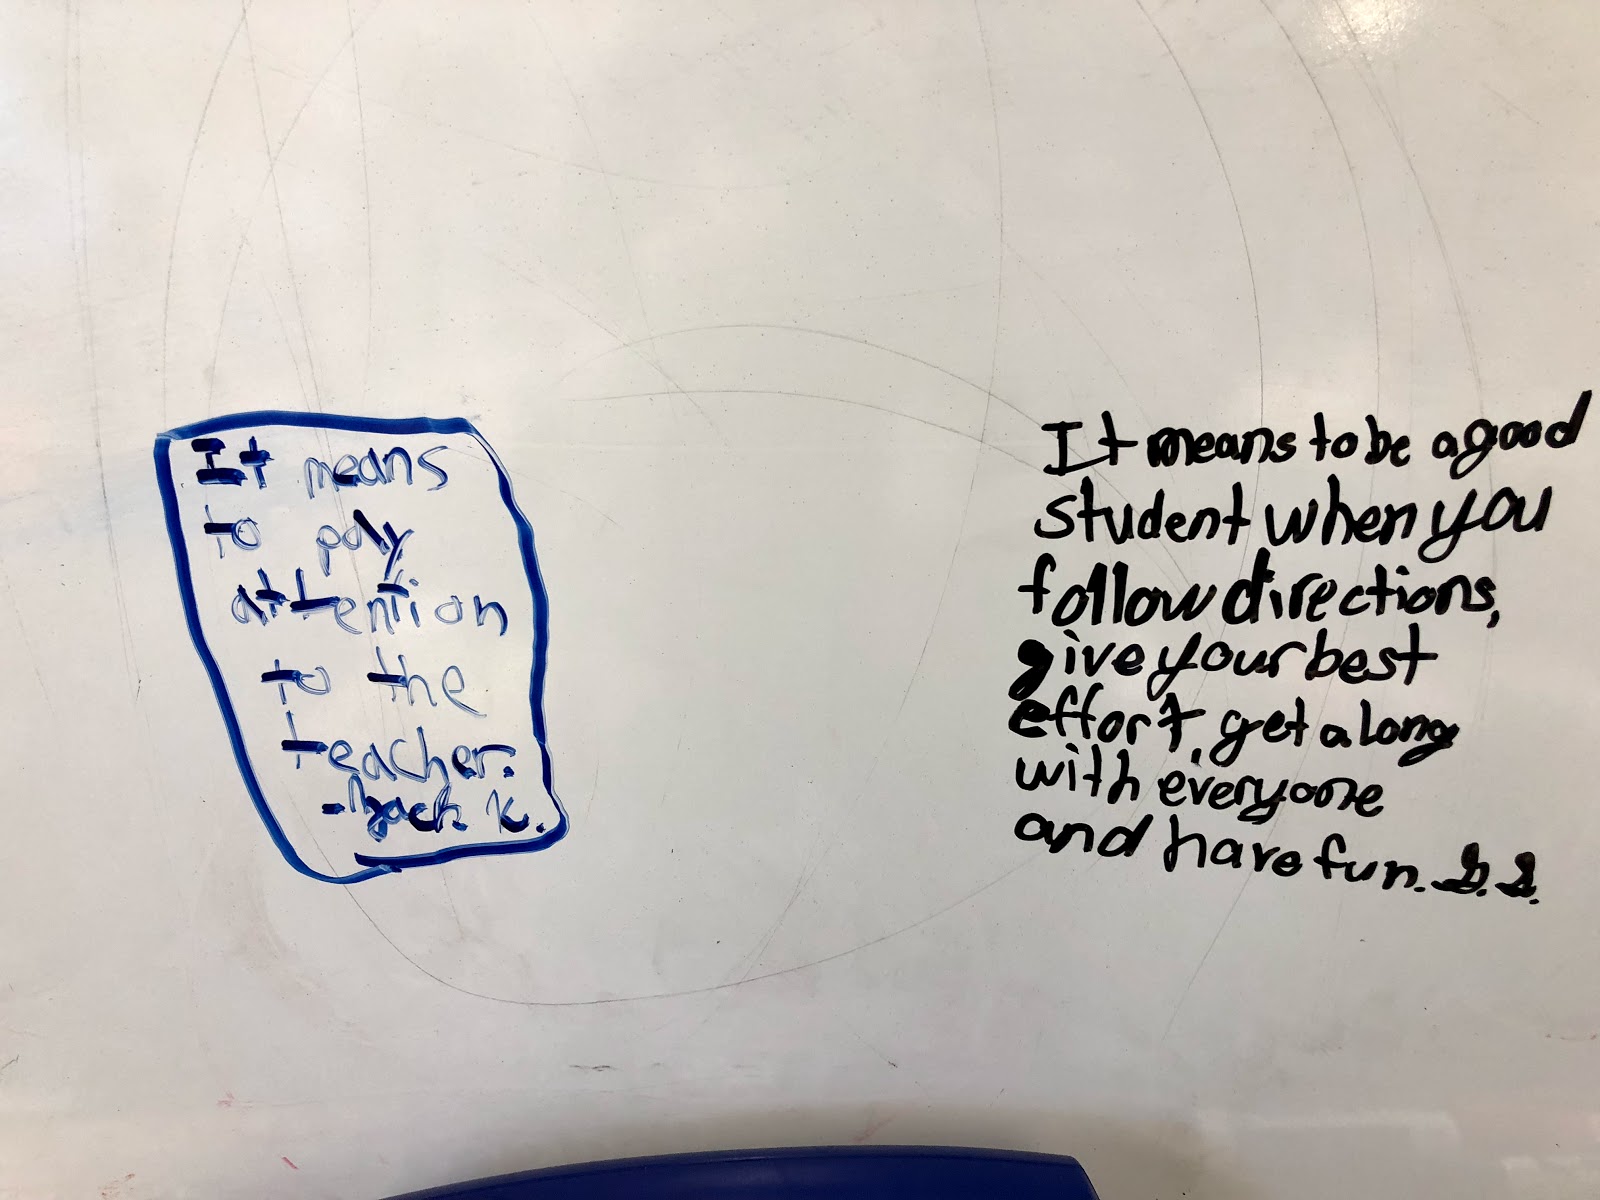 It means
to pay
attention
to the
teacher.
- Zach K.
It means to be a good
student when you
follow directions,
give your best
effort, get along
with everyone
and have fun.